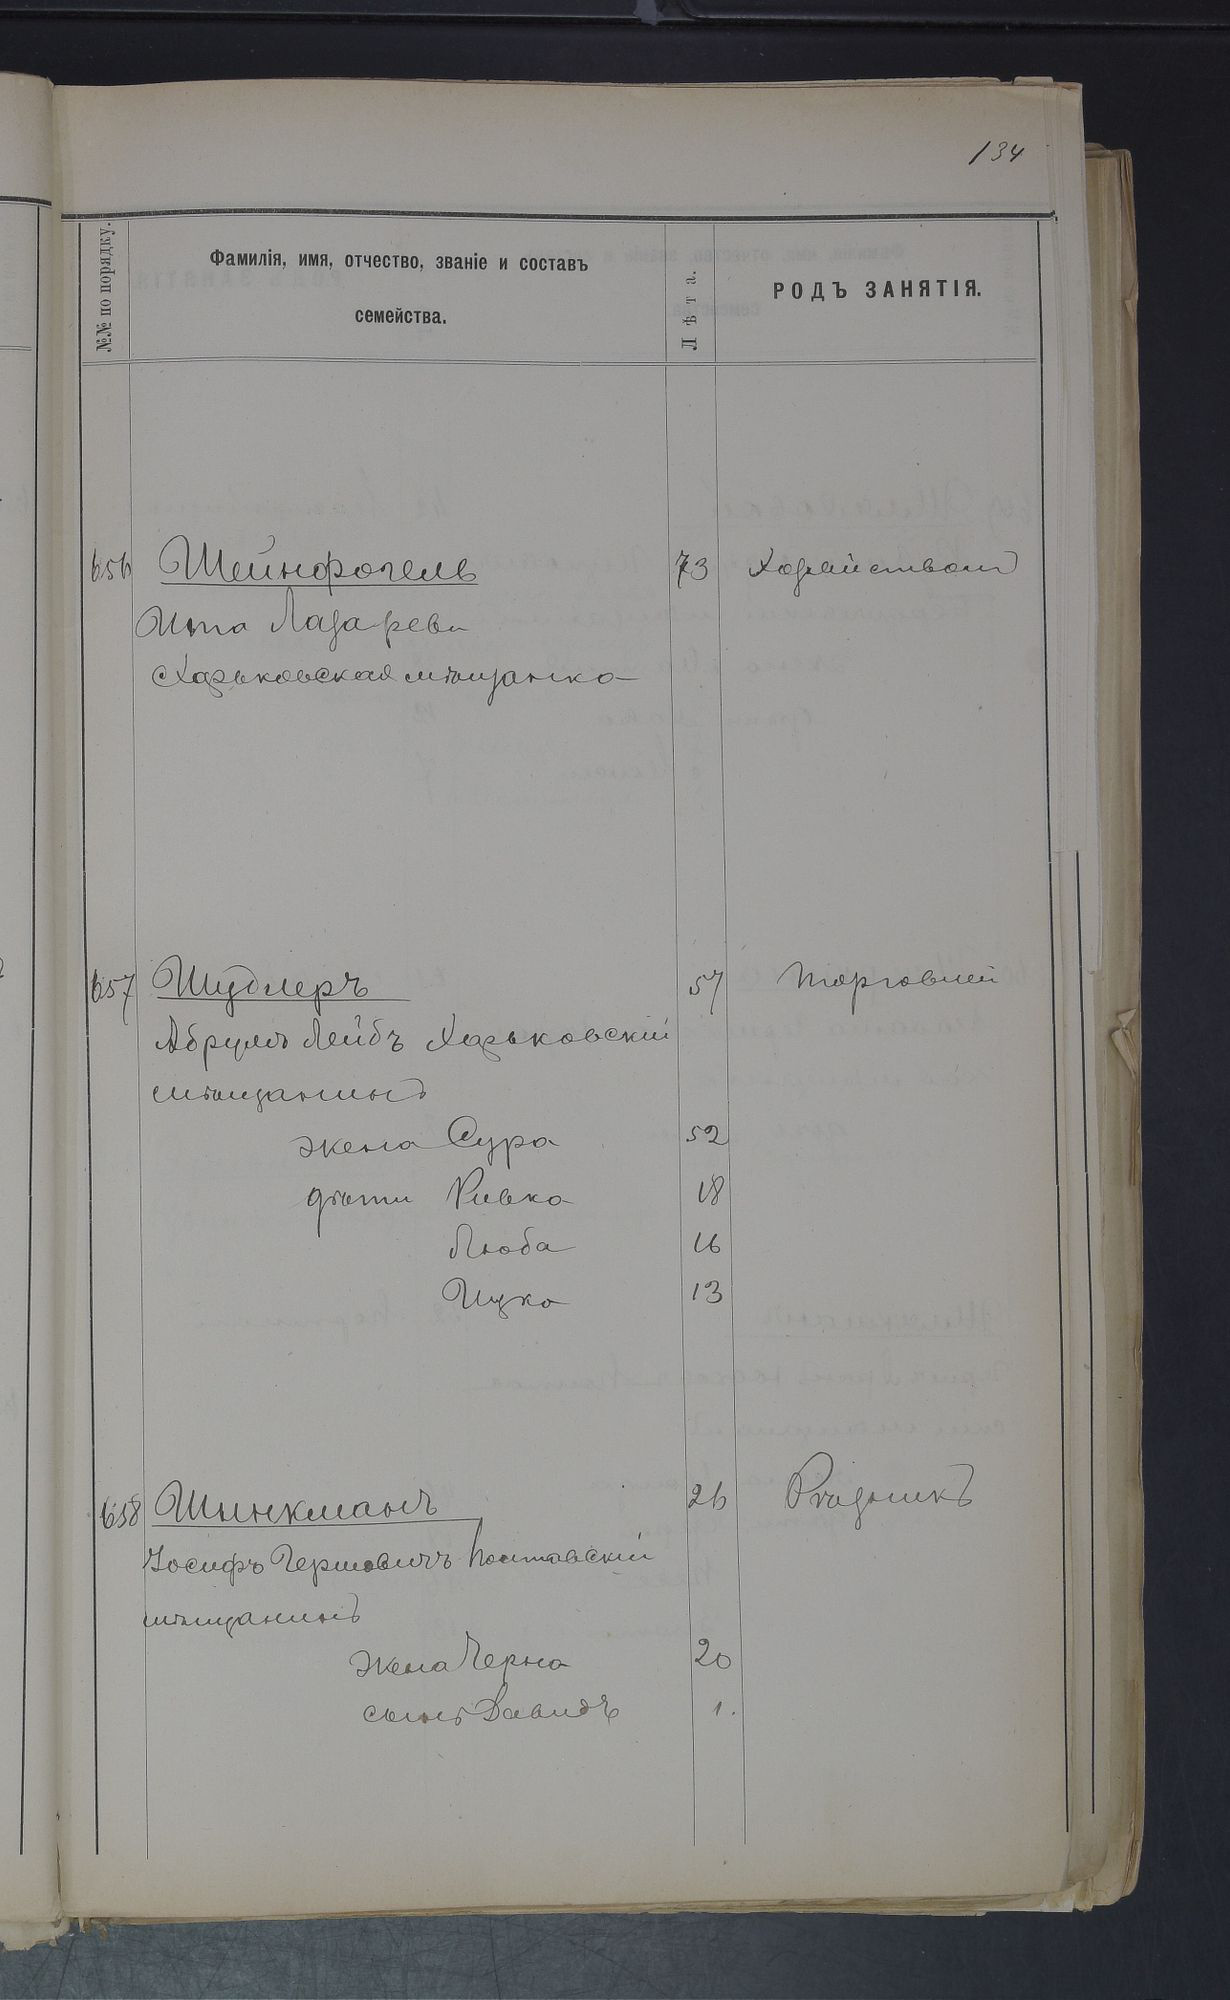 134
№№ по порядку.
Фамилія, имя, отчество, званіе и составъ
семейства.
Лѣта.
РОДЪ ЗАНЯТІЯ.
656 Шейнфогель 73 Хозяйствомъ
Ита Лазарева
Харьковская мѣщанка
657 Шудлеръ 57 Торговлей
Абрумъ Лейбъ Харьковскій
мѣщанинъ
жена Сура 52
дѣти Ривка 18
Люба 16
Ицко 13
658 Шинкманъ 26
Іосифъ Гершовичъ Полтавскій
мѣщанинъ
жена Черна 20
сынъ Давидъ 1.